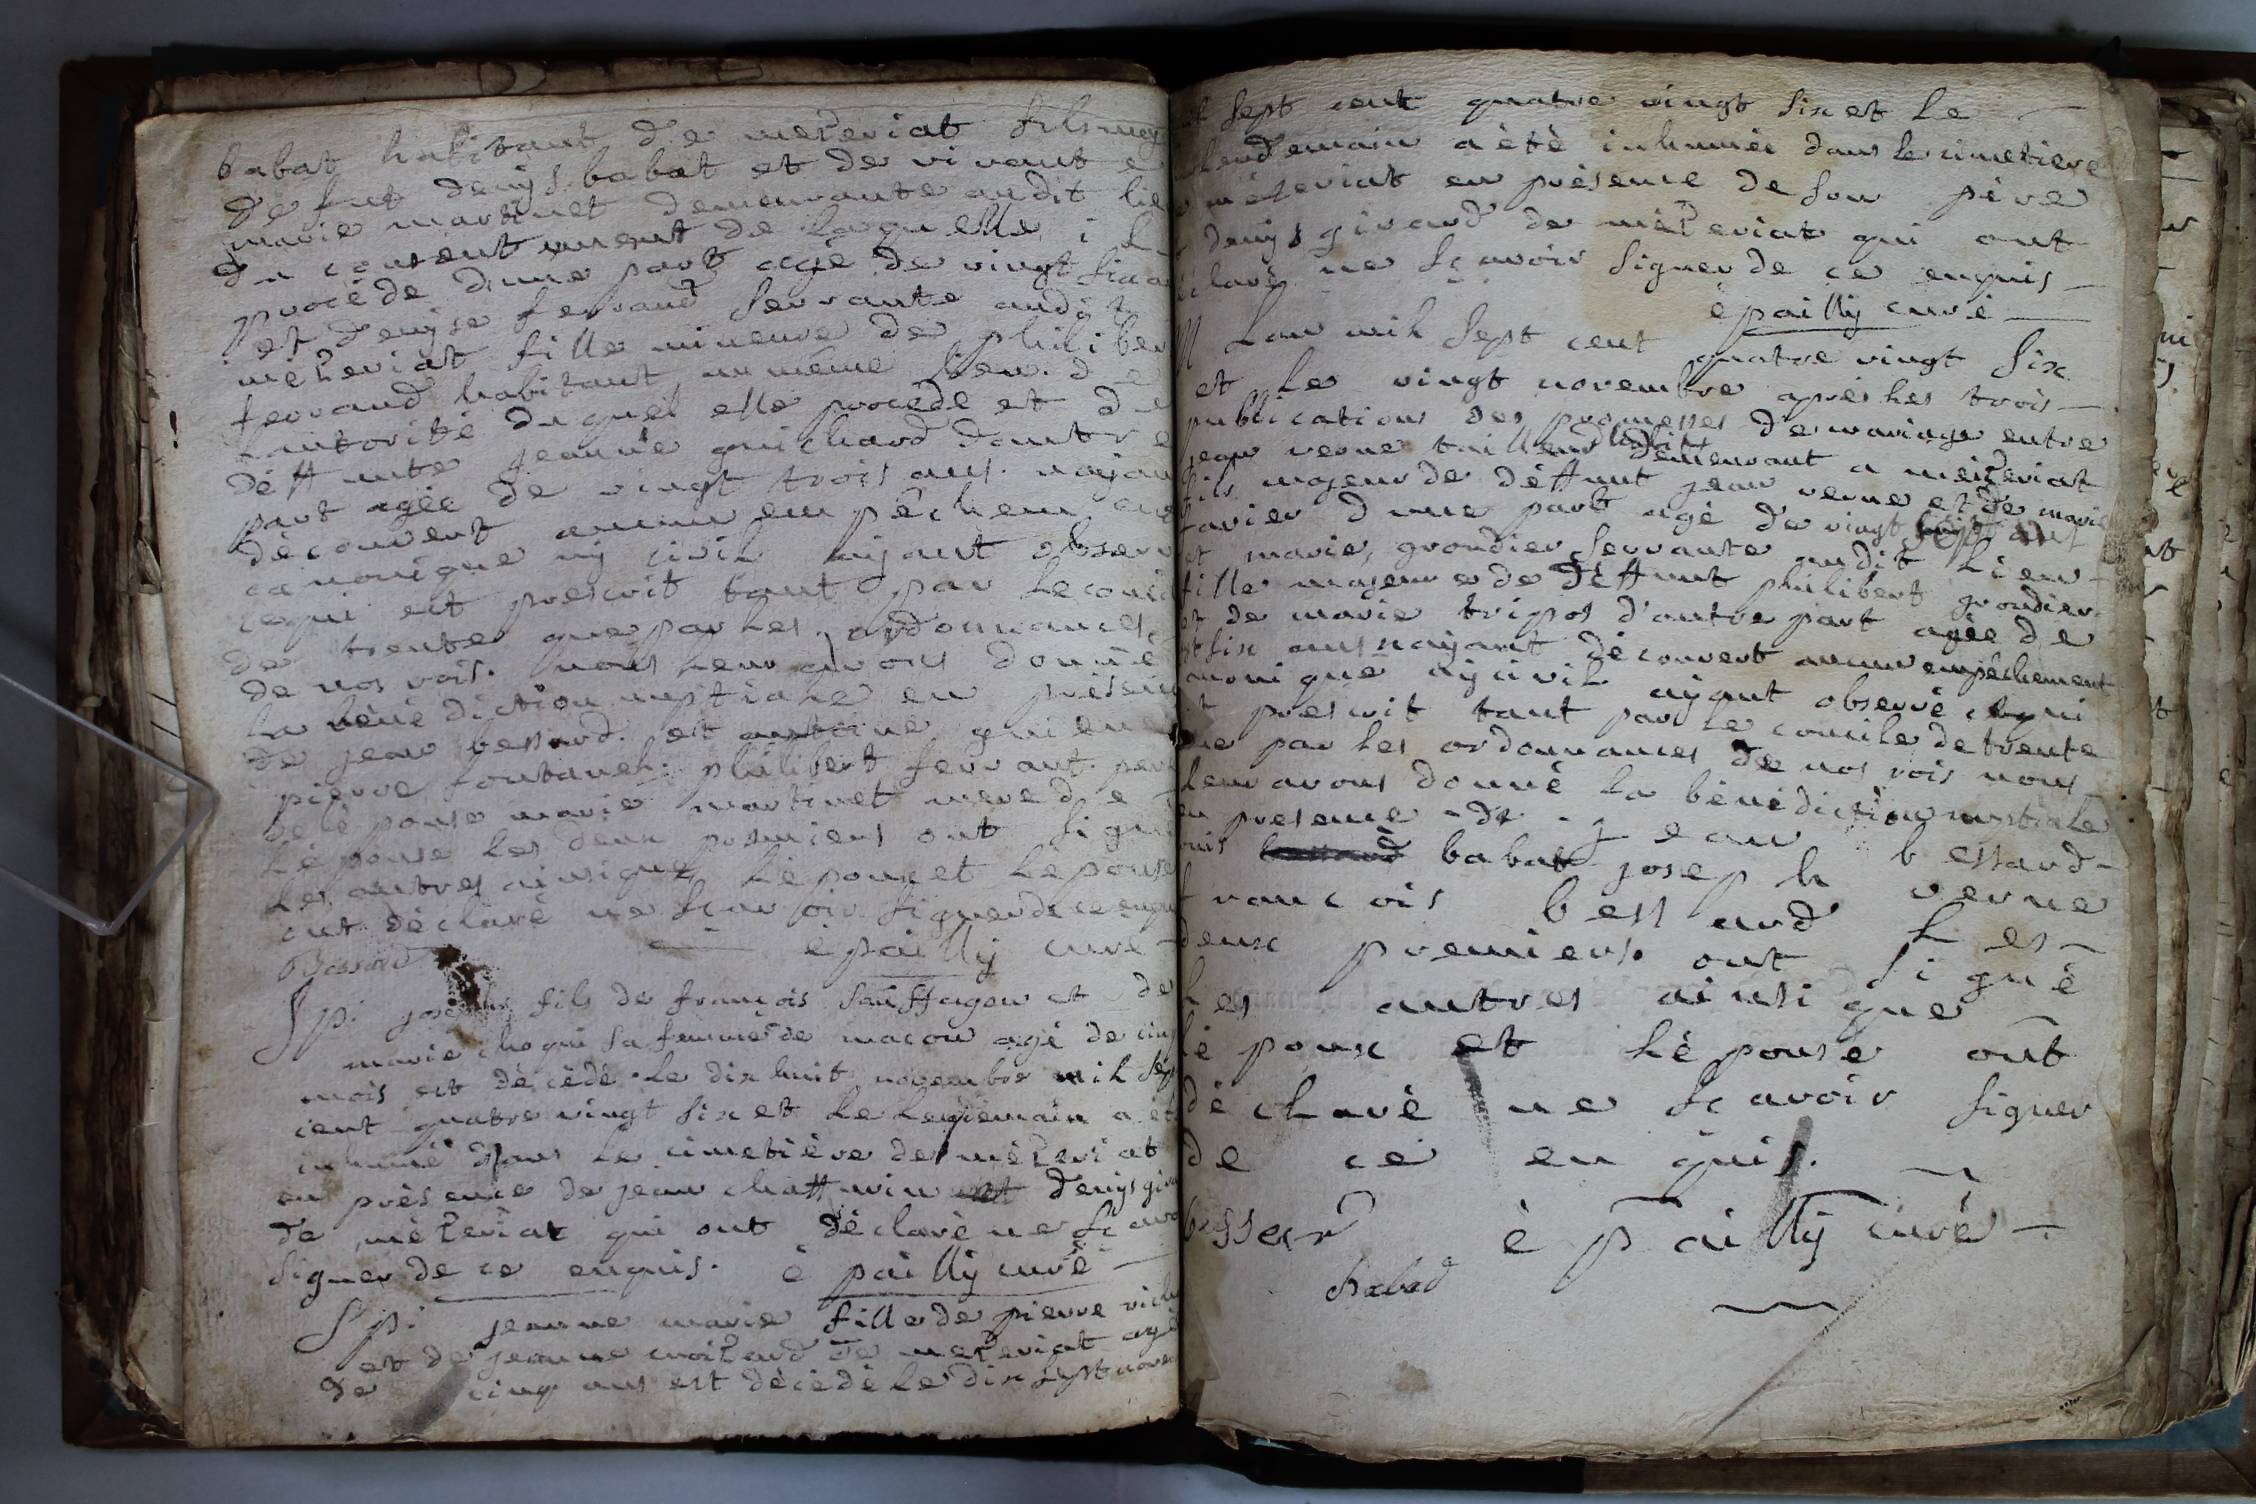 babat habitant de mezeriat fils maj
de fut denijs babat et de vivante
marie martinet demeurante audit lie
du consentement de laquelle il
procéde dune part agé de vingt six a
et denijse ferrand servante audit
mézeriat fille mineure de philiber
ferrand habitant au même lieu de
lautorité duquel elle procede et de
déffunte jeanne guichard dautre
part agée de vingt trois ans nayan
découvert aucun empêchem
canonique nij civil aijant observ
cequi est prescrit tant par le conci
de trente que par les ordonnances
de nos rois. nous leur avons donné
la bénédiction nuptiale en présen
de jean bessard et antoine
pierre fontanel philibert ferrant per
de léponse marie martinet mere de
lépouse les deux premiers ont signé
les autres ainsique lépouxet lepouse
ont déclaré ne sçavoir signer de ce enqu
é pailly curé
Bessard
joseph fils de françois sauffagon et de
marie sa femme de macon agé de cinq
mois est décédé le dix huit novembre mil sep
cent quatre vingt six et le lendemain a ét
inhumé dans le cimetière de mézeriat
en présence de jean chaffurin et denijs gira
de mézeriat qui ont déclaré ne sçavo
signer de ce enquis. é pailly curé
jeanne marie fille de pierre
et de jeanne de mezeriat agé
de cinq ans est décédé le dix sept nove
sept cent quatre vingt six et le
lendemain a été inhumée dans le cimetiere
mézeriat en présence de son père
denijs girard de mézeriat qui ont
claré ne sçavoir signer de ce enquis
é pailly curé
Lan mil sept cent quatre vingt six
et le vingt novembre après les trois
publications des promesses de mariage entre
jean verne tailleur dhabits demeurant a mézeriat
fils majeur de déffunt jean verne et de marie
tavier d une part agé de vingt ans
et marie grondier servante audit lieu
fille majeure de déffunt philibert grondier
et de marie tripos d'autre part agée de
six ans nayant découvert aucun empêchement
nonique nij civil aijant observé cequi
prescrit tant par le concile de trente
ue par les ordonnances de nos rois nous
leur avons donné la bénédiction nuptiale
en presence de jean bessard
babat joseph verne
francois bessard les
deux premiers ont signé
les autres ainsi que
lé poux et lé pouse ont
dé claré ne sçavoir signer
de ce en quis.
bessard é pailly curé
babad